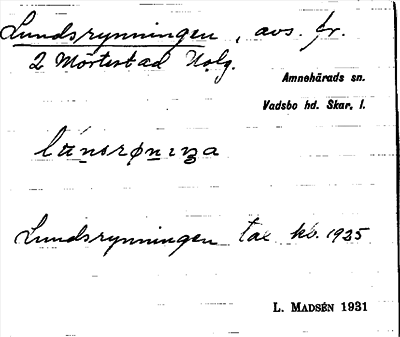 Lundsrynningen, avs. fr.
2 Mörtestad Uolg.
Amnehärads sn.
Vadsbo hd. Skar. l.
Lundsrynningen tax kb. 1925
L. MADSÉN 1931